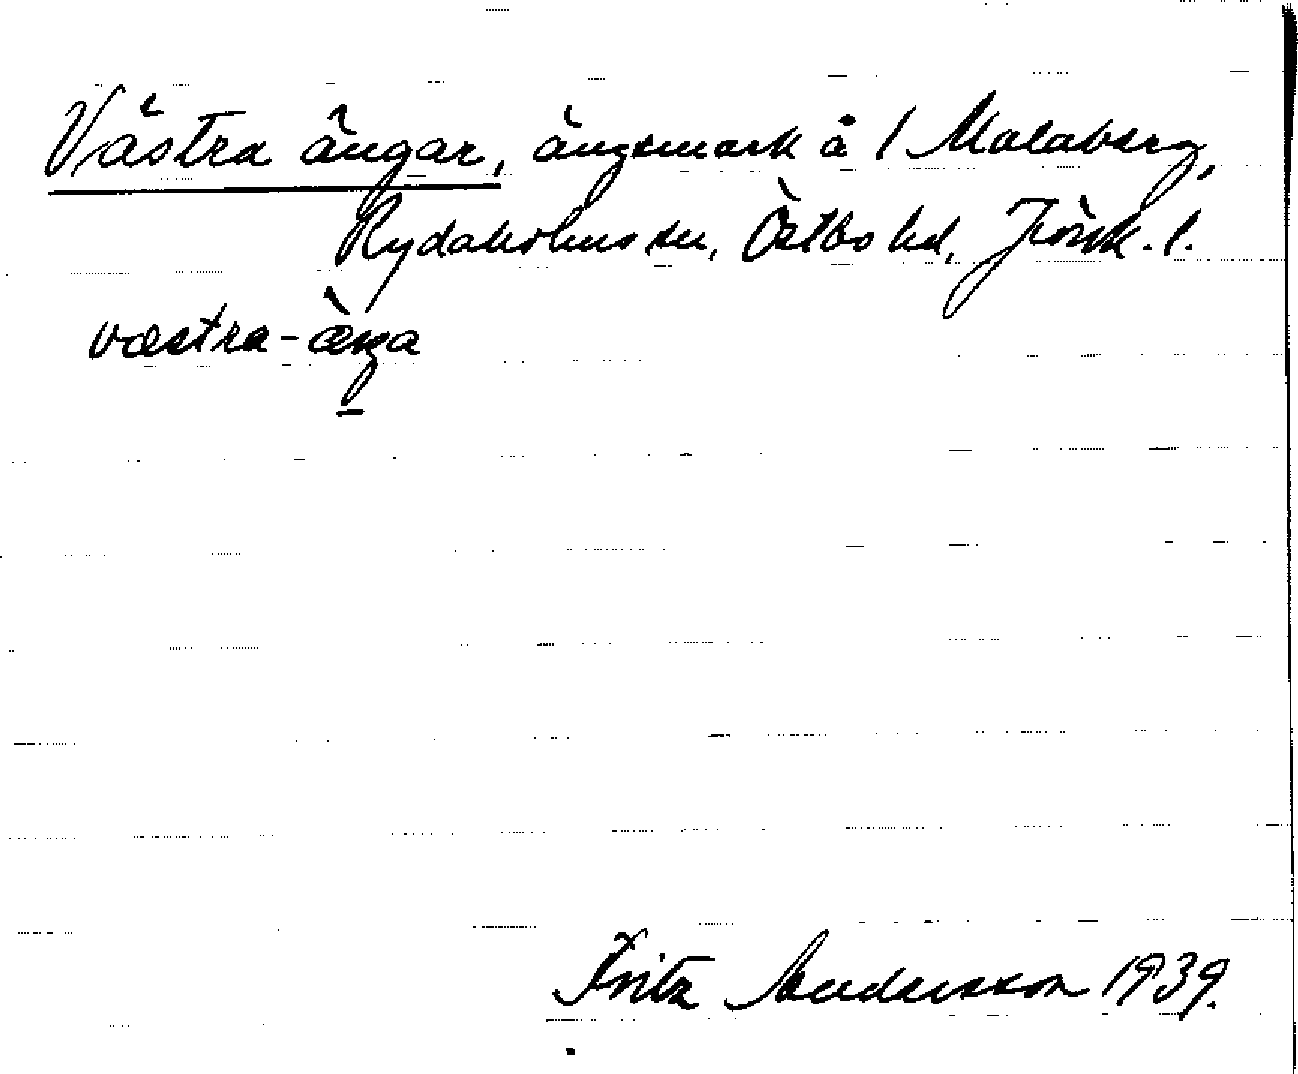 Västra ängar, ängsmark å 1 Malaberg,
Rydaholms sn, Östbo hd, Jönk. l.
væstra-æ̀ŋa
Fritz Andersson 1939.